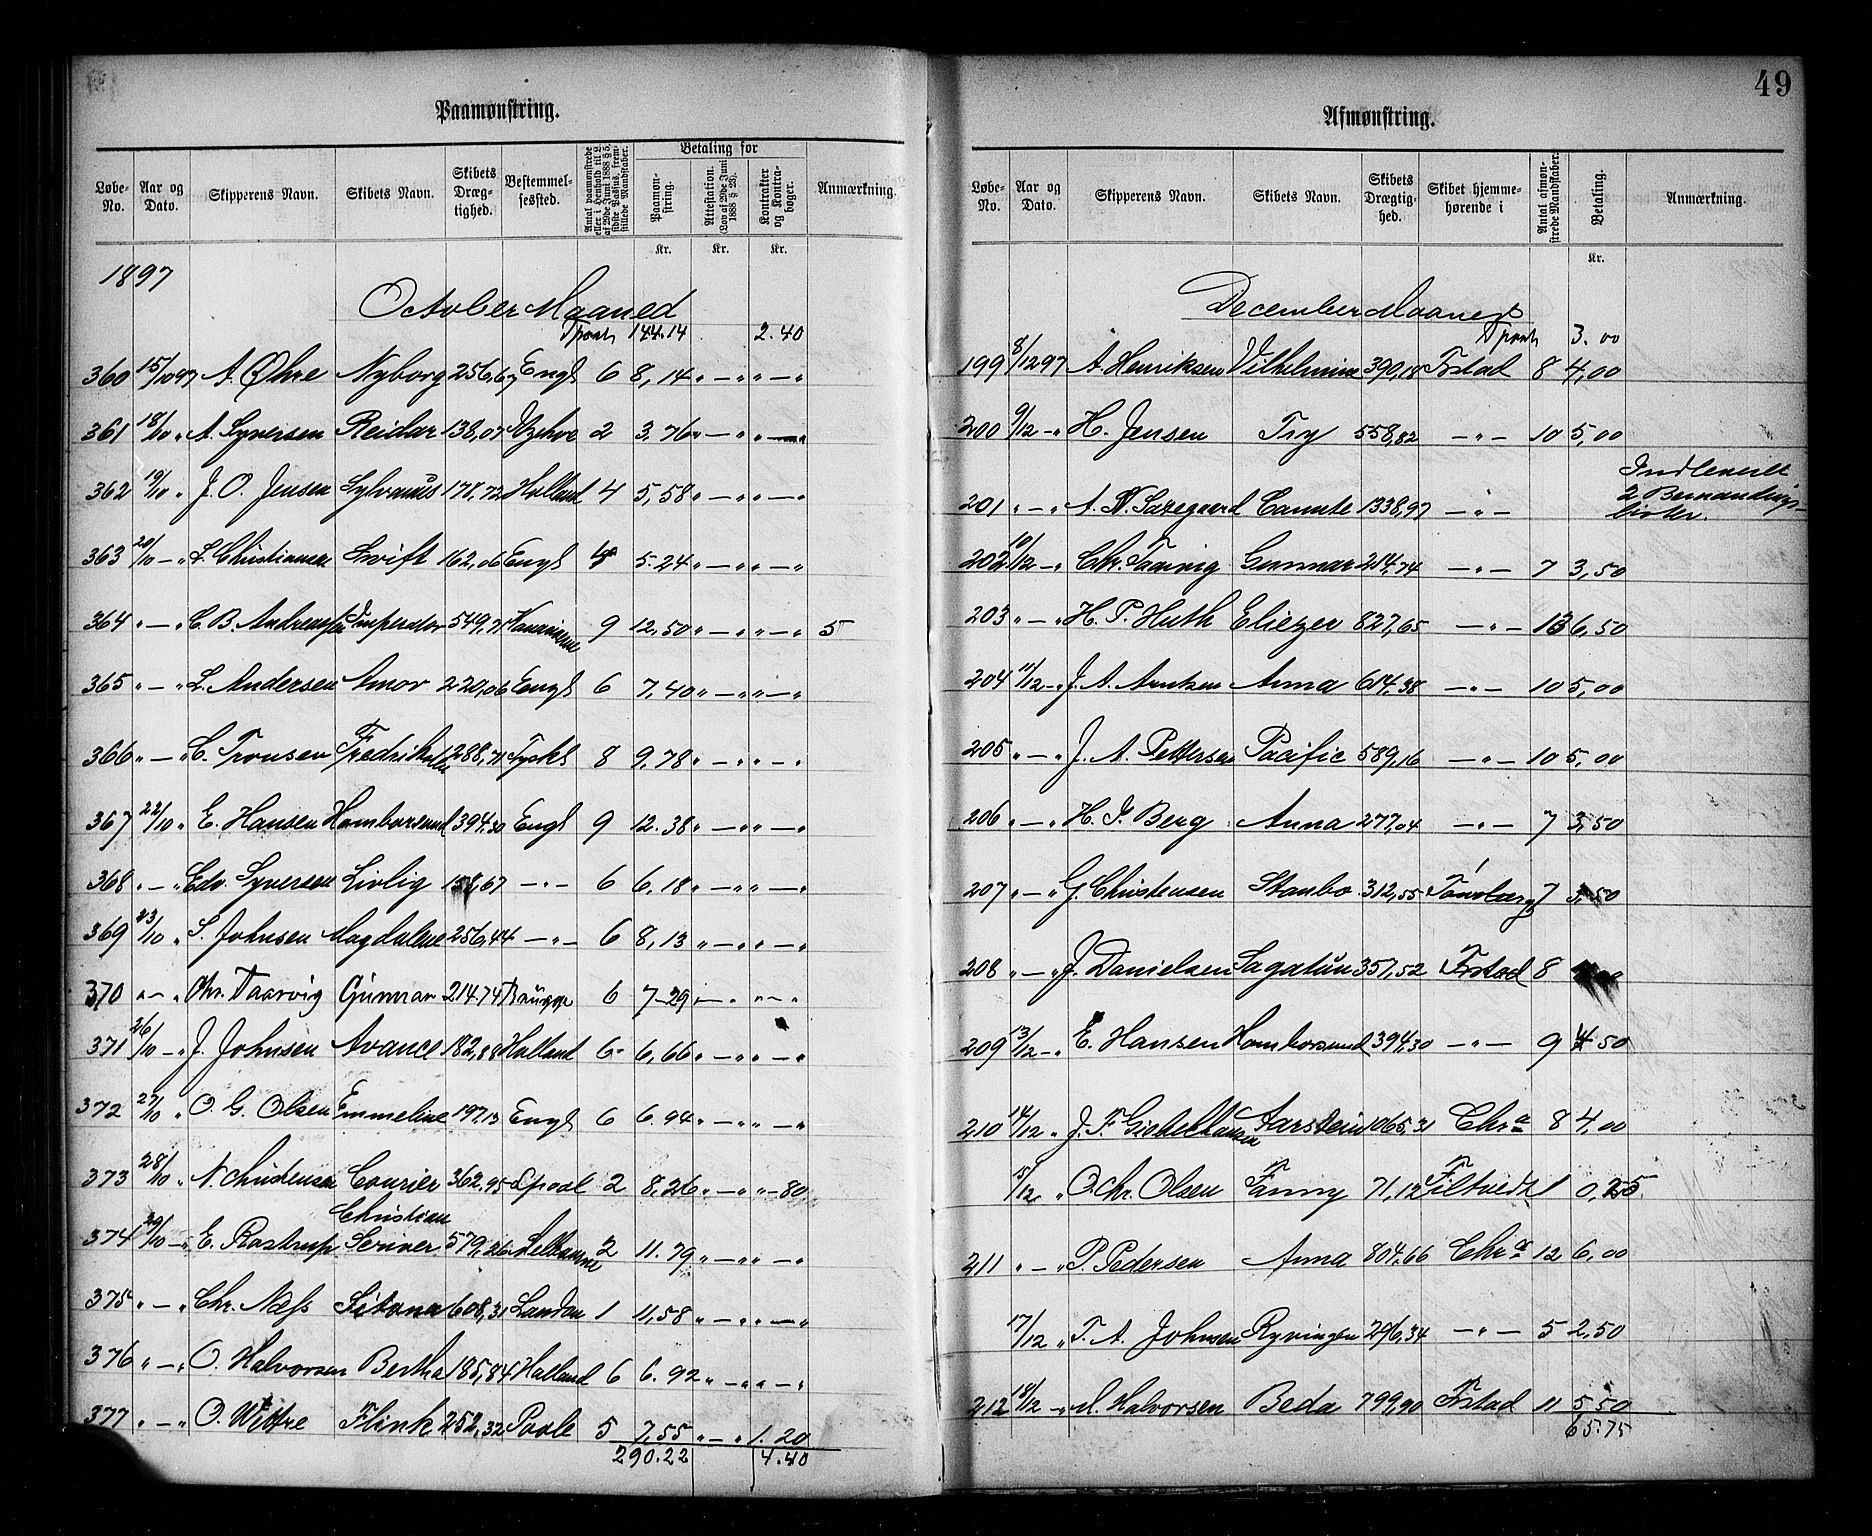 49
Paamønstring.
Løbe-No. Aar og Dato. Skipperens Navn. Skibets Navn. Skibets Dræg-tighed. Bestemmel-sessted. Antal paamønstrede eller i Henhold til L. af 29de Juni 1888 § 5, sidste Passus, frem-stillede Mandskaber. Betaling for Paamøn-string. Attestation. (Lov af 29de Juni 1888 § 23). Kontrakter og Kontra-bøger. Anmærkning.
Kr. Kr. Kr.
1897
October Maaned
Tpört 144.14 2.40
360 15/10 97 A. Øhre Nyborg 256,67 Engl 6 8,14 " — " " — "
361 18/10 " A. Syversen Reidar 138,07 2 3,76 " — " " — "
362 19/10 " J. O. Jensen Sylvanus 178,72 Holland 4 5,58 " — " " — "
363 20/10 — " L. Christiansen Swift 162,06 Engl 4 5.24 " — " " — "
364 " — " C. B. Andreassen Imperator 549,71 9 12,50 " — " " — " 5
365 " — " L. Andersen Amor 220,06 Engl 6 7,40 " — " " — "
366 " — " C. Tronsen 288,71 Tyskl 8 9,78 " — " " — "
367 22/10 " E. Hansen Homborsund 394,30 Engl 9 12.38 " — " " — "
368 " — " Edv. Syversen Livlig 158,67 — " — 6 6.18 " — " " — "
369 23/10 " S. Johnsen Magdalene 256,44 — " — 6 8,13 " — " " — "
370 " — " Chr. Taarvig Gunnar 214.74 Brügge 6 7-29 " — " " — "
371 26/10 — " J. Johnsen Avance 182,88 Holland 6 6,66 " — " " — "
372 27/10 " O. G. Olsen Emmeline 197,13 Engl 6 6.94 " — " " — "
373 28/10 " N. Christensen Courier 362,95 Lpool 2 8,26 " — " " - 80
374 29/10 — " E. Rostrup Christian Scriver 579,26 2 11.79 " — " " — "
375 " — " Chr. Næss Sitona 608,31 London 1 11,58 " — " " — "
376 " — " O. Halvorsen Bertha 185,84 Holland 6 6.92 " — " " — "
377 " — " O. Wittre Flink 252,32 Poole 5 7,55 " — " 1.20
290.22 4.40
Afmønstring.
Løbe-No. Aar og Dato. Skipperens Navn. Skibets Navn. Skibets Drægtig-hed. Skibet hjemme-hørende i Antal afmøn-strede Mandskaber. Betaling. Anmærkning.
Kr.
December Maaned
Tpört 3.00
199 8/12 97 A. Henriksen Vilhelmine 390,18 Frstad 8 4,00
200 9/12 — " H. Jensen Try 558,82 — " — 10 5,00
201 " — " A. N. Saxegaard Canute 1338,97 — " — Indleveret 2 Bemandings-lister.
202 10/12 — " Chr. Taarvig Gunnar 214,74 — " — 7 3,50
203 " — " H. P. Huth Eliezer 827,65 — " — 13 6,50
204 11/12 — " J. A. Arntzen Anna 614,38 — " — 10 5,00
205 " — " J. A. Pettersen Pacific 589,16 — " — 10 5,00
206 " — " H. J. Berg Anna 277,04 — " — 7 3,50
207 " — " G. Christensen Stanbo 312,55 Tønsberg 7 3,50
208 " — " J. Danielsen Sagatun 357,52 Frstad 8
209 13/12 — " E. Hansen Homborsund 394,30 — " — 9 4.50
210 14/12 " J. F. Aarstein 1065,31 Chr a 8 4,00
15/12 " O. Chr. Olsen Fanny 71,12 Filtvedt 1 0,25
211 " — " P. Pedersen Anna 804,66 Chr a 12 6,00
17/12 " T. A. Johnsen Ryvingen 296,34 — " — 5 2,50
212 18/12 — " M. Halvorsen Beda 799,90 Frstad 11 5,50
65.75